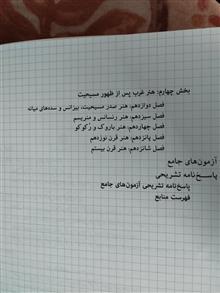 بخش چهارم: هنر غرب پس از ظهور مسیحیت
فصل دوازدهم: هنر صدر مسیحیت، بیزانس و سده‌های میانه
فصل سیزدهم: هنر رنسانس و منریسم
فصل چهاردهم: هنر باروک و رُکوکو
فصل پانزدهم: هنر قرن نوزدهم
فصل شانزدهم: هنر قرن بیستم
آزمون‌های جامع
پاسخ‌نامه تشریحی
پاسخ‌نامه تشریحی آزمون‌های جامع
فهرست منابع